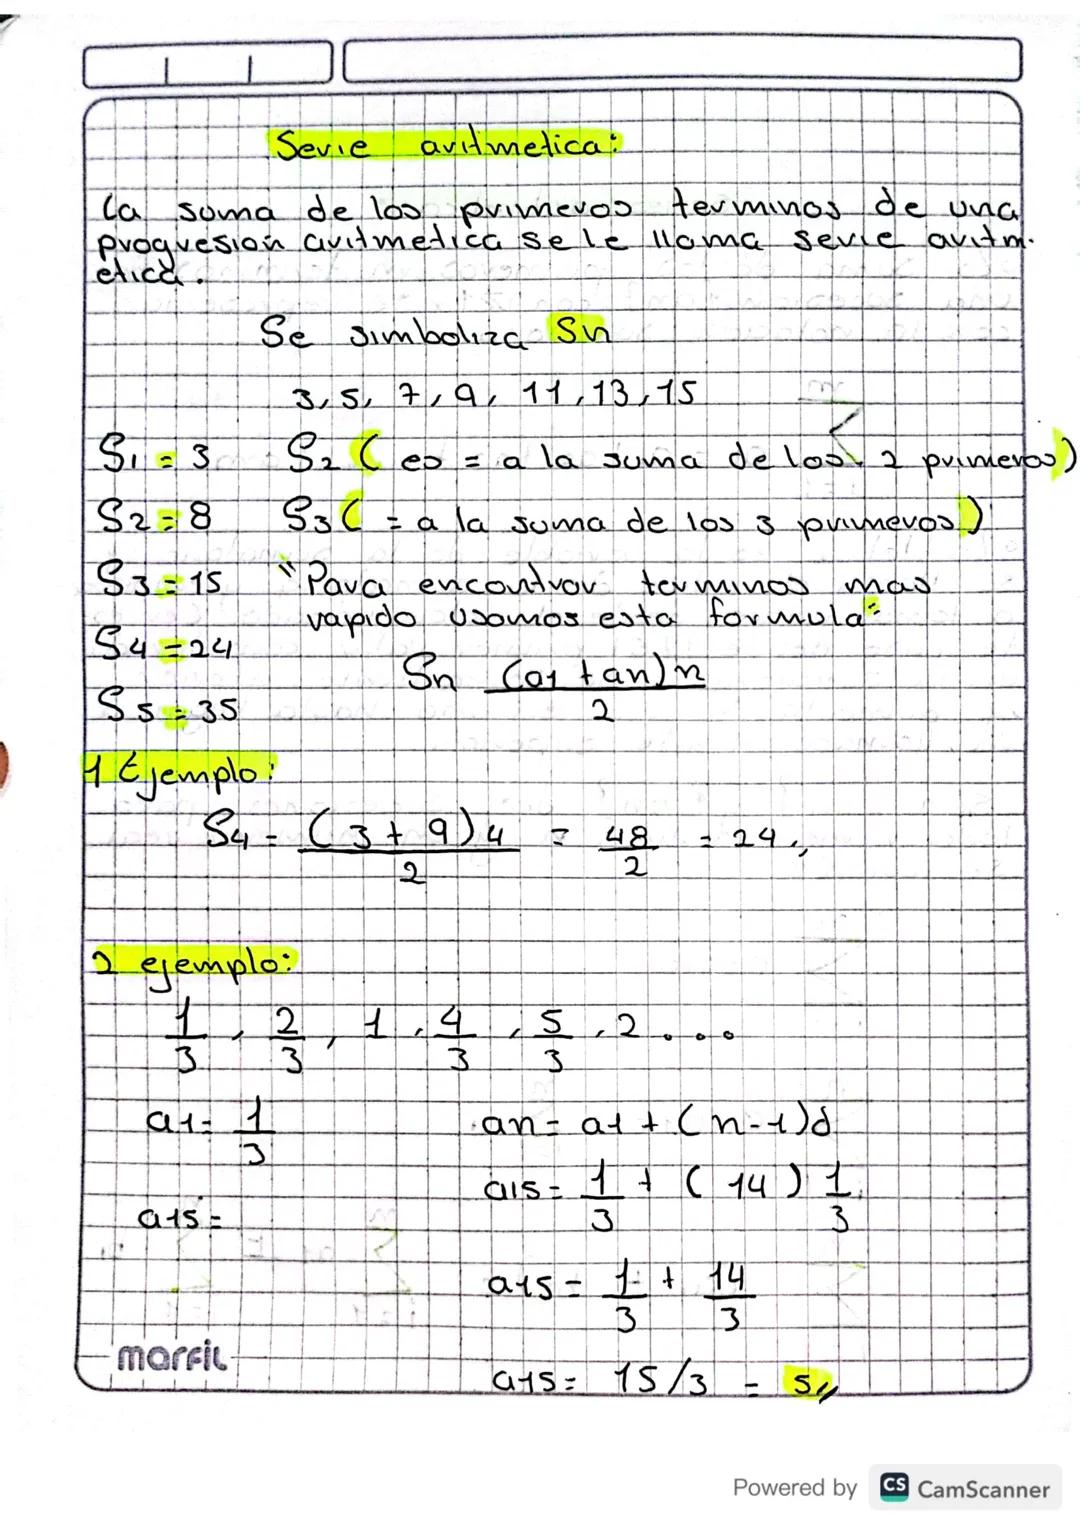 Serie aritmetica:
La suma de los primeros terminos de una
progresion aritmetica se le llama serie aritm-
etica.
Se simboliza Sn
3, 5, 7, 9, 11, 13, 15
S1 = 3 S2 ( es = a la suma de los 2 primeros)
S2 = 8 S3 ( = a la suma de los 3 primeros)
S3 = 15 "Para encontrar terminos mas
rapido usamos esta formula"
S4 = 24
Sn (a1 + an)n / 2
S5 = 35
1 Ejemplo:
S4 = (3 + 9)4 / 2 = 48 / 2 = 24
2 ejemplo:
1/3, 2/3, 1, 4/3, 5/3, 2...
a1 = 1/3 an = a1 + (n-1)d
a15 = 1/3 + (14) 1/3
a15 =
a15 = 1/3 + 14/3
a15 = 15/3 = 5
marfil
Powered by CS CamScanner